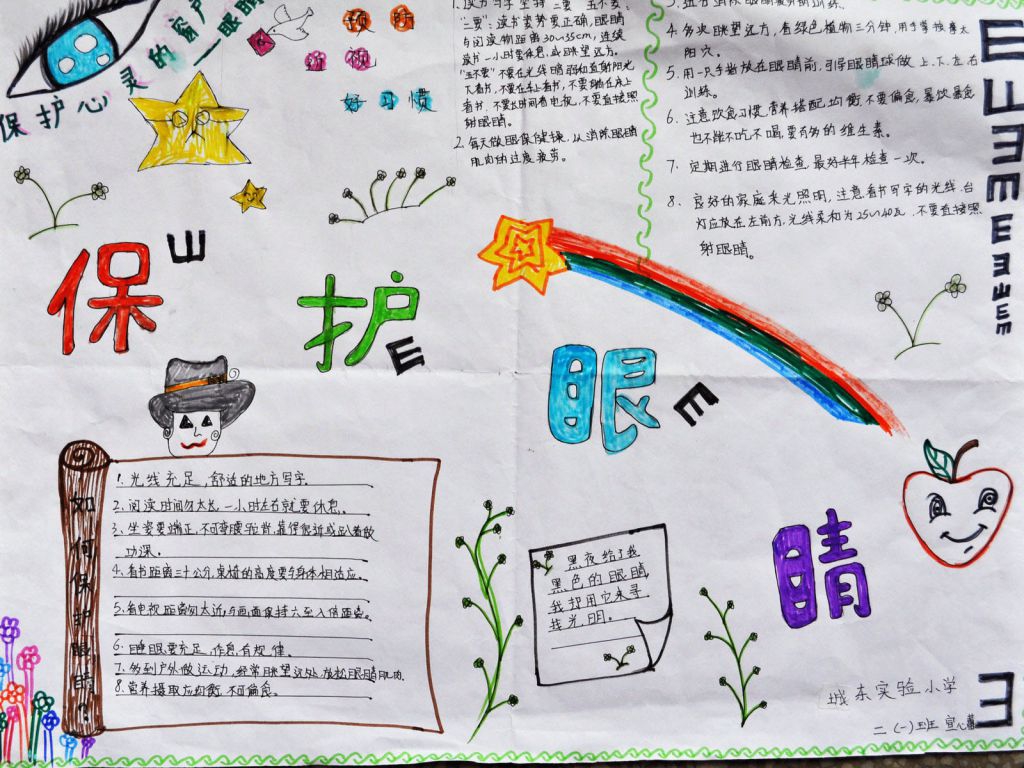 保护心灵的窗户
——眼睛
预防
近视
好习惯
"二要":读书姿势要正确,眼睛
与阅读物距离30~35cm,连续
读书一小时要休息,或眺望远方。
"五不要"不要在光线暗弱和直射阳光
下看书,不要在车上看书,不要躺在床上
看书,不要长时间看电视,不要直接照
射眼睛。
2.每天做眼保健操,从消除眼睛
肌肉的过度疲劳。
4.多次眺望远方,看绿色植物三分钟,用手掌按摩太
阳穴。
5.用一只手指放在眼睛前,引导眼睛球做上、下、左、右
训练。
6.注意饮食习惯,营养搭配均衡,不要偏食,暴饮暴食
也不能不吃不喝,要有多的维生素。
7.定期进行眼睛检查,最好半年检查一次。
8.良好的家庭采光照明,注意看书写字的光线,台
灯应放在左前方,光线柔和为25~40瓦,不要直接照
射眼睛。
E
E
E
E
E
E
E
E
保 E
护 E
眼 E
睛
如何保护眼睛?
1.光线充足,舒适的地方写字
2.阅读时间勿太长,一小时左右就要休息。
3.坐姿要端正,不可弯腰驼背,靠得很近或趴着做
功课。
4.看书距离三十公分,桌椅的高度要与身体相适应。
5.看电视距离勿太近,与画面保持六至八倍距离。
6.睡眠要充足,作息有规律。
7.多到户外做运动,经常眺望远处,放松眼睛肌肉。
8.营养摄取应均衡,不可偏食。
黑夜给了我
黑色的眼睛
我却用它来寻
找光明。
E
城东实验小学
二(一)班 宣心